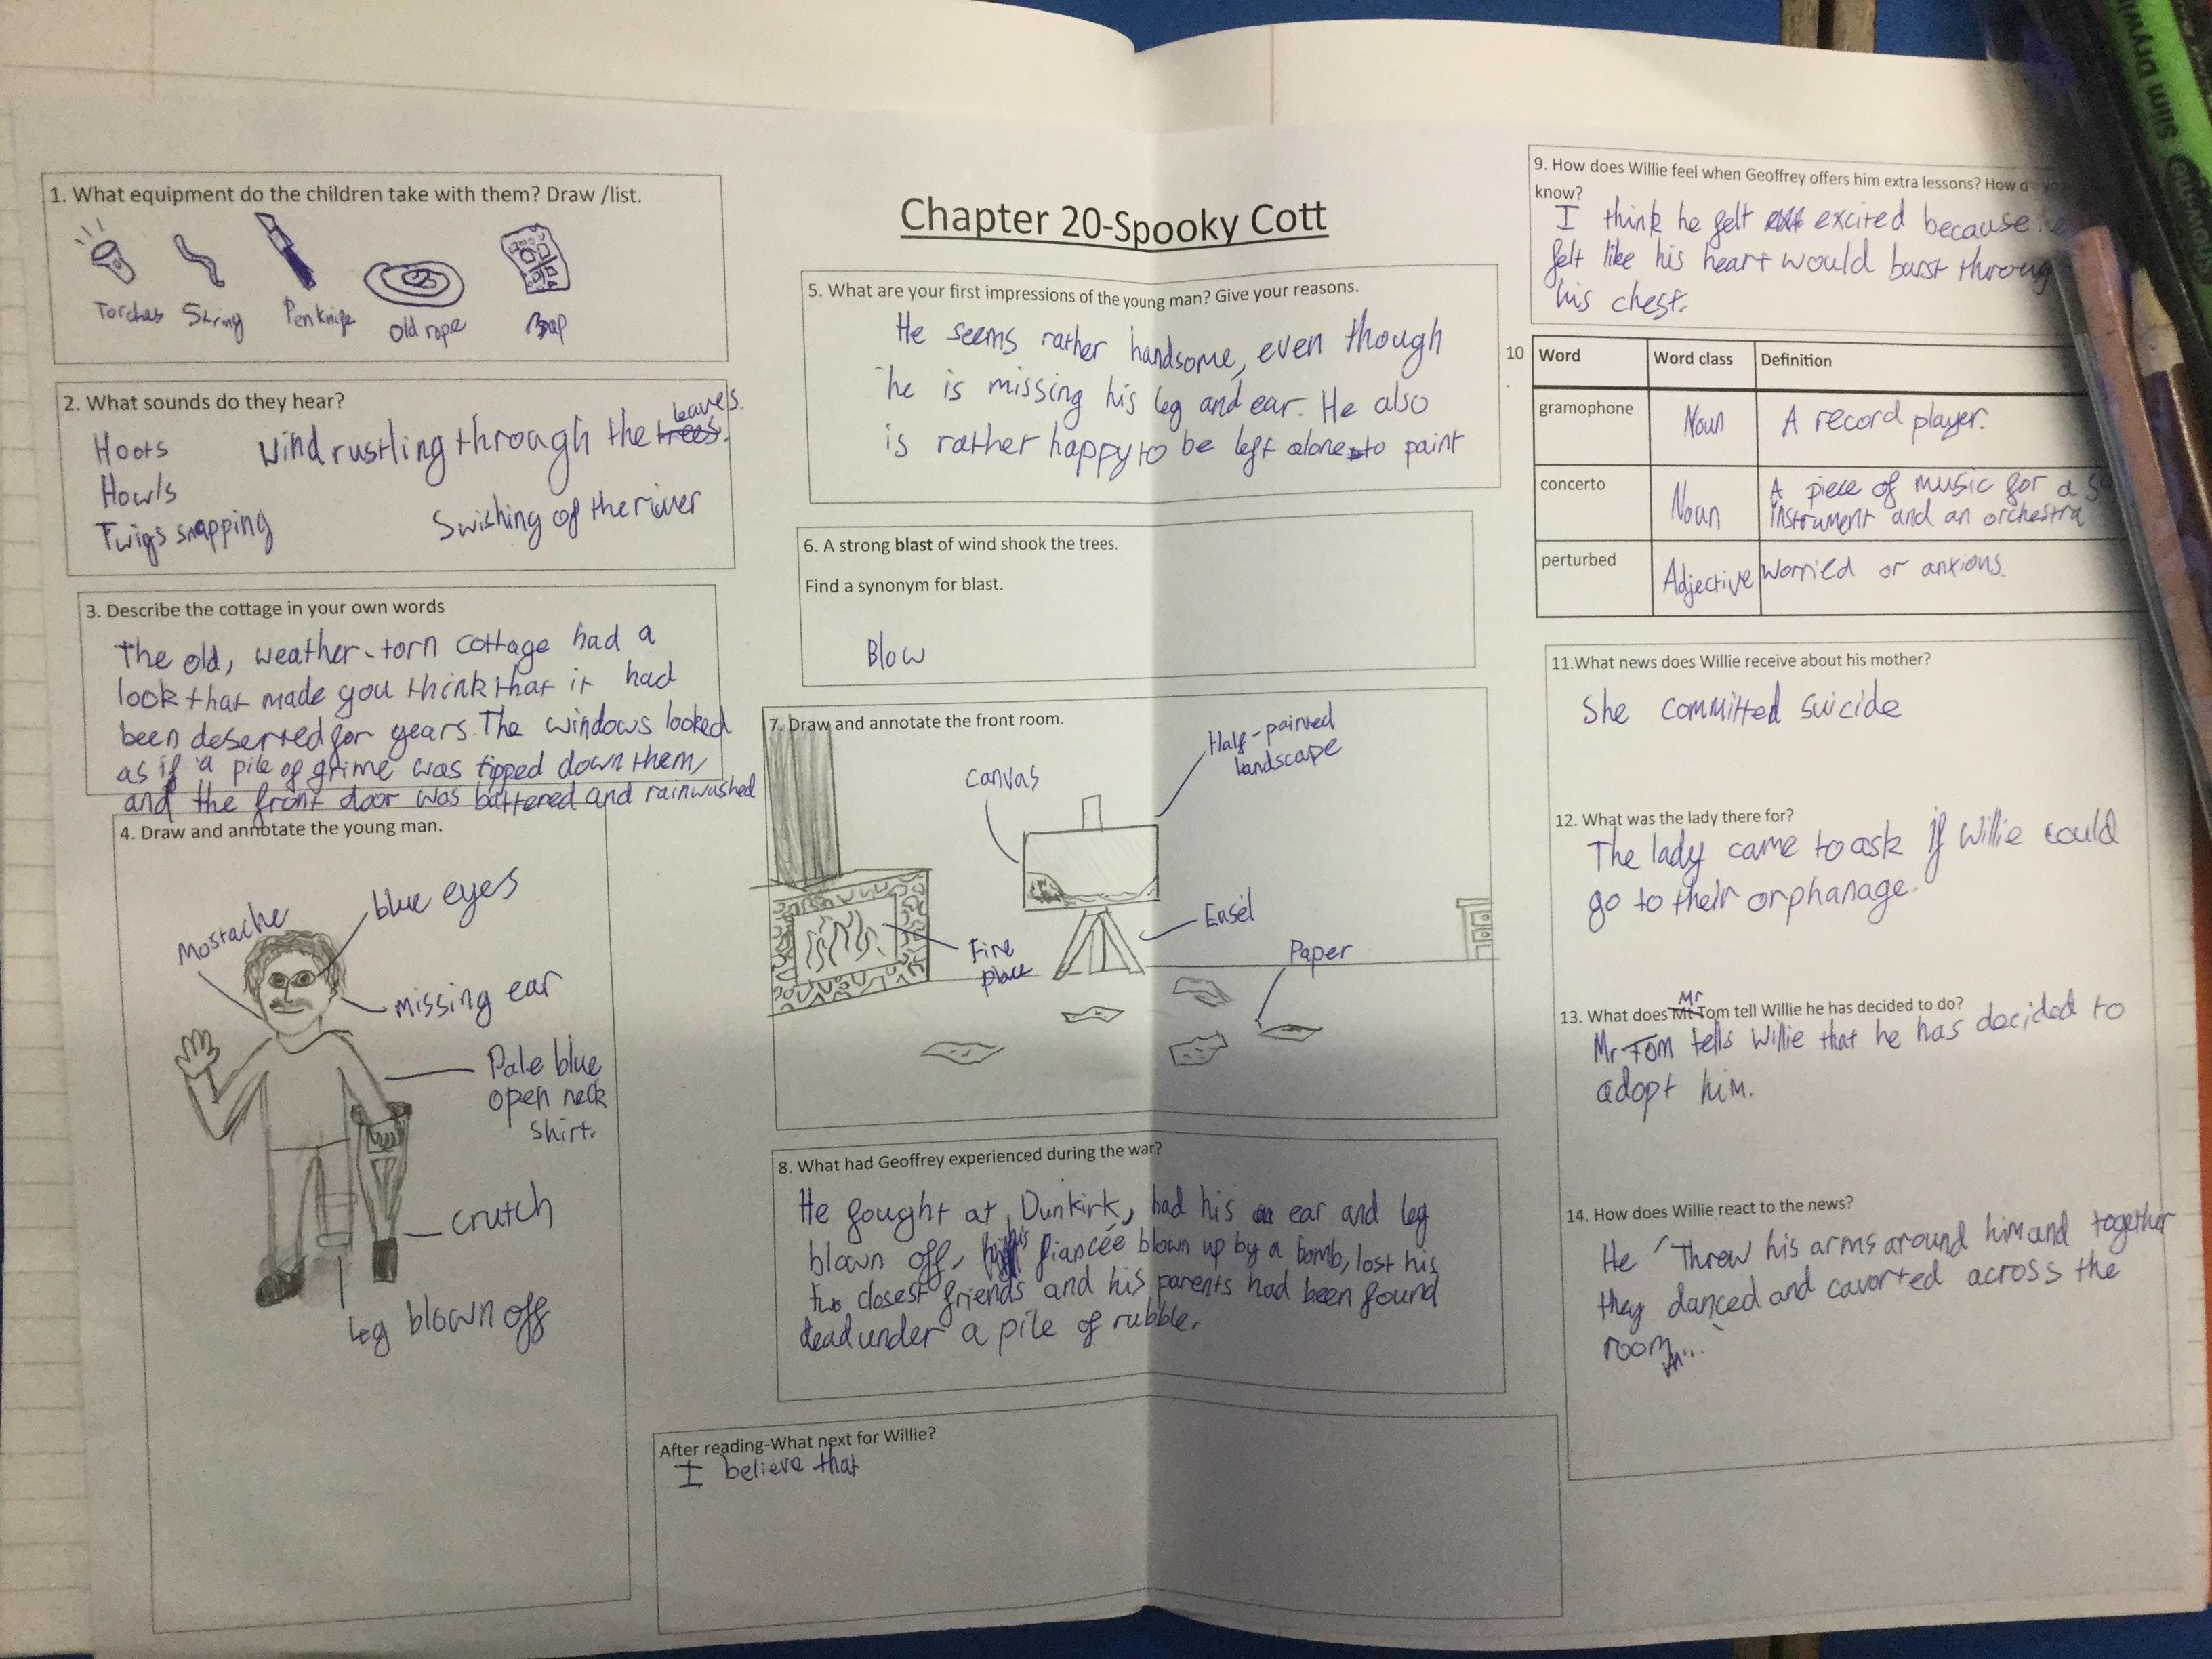 1. What equipment do the children take with them? Draw /list.
Torches
String
Penknife
Old rope
Map
2. What sounds do they hear?
Hoots
Howls
Twigs snapping
Wind rustling through the trees. leaves.
Swishing of the river
3. Describe the cottage in your own words
The old, weather-torn cottage had a
look that made you think that it had
been deserted for years. The windows looked
as if a pile of grime was tipped down them,
and the front door was battered and rainwashed
4. Draw and annotate the young man.
Mostache
blue eyes
missing ear
Pale blue
open neck
shirt.
crutch
leg blown off
Chapter 20-Spooky Cott
5. What are your first impressions of the young man? Give your reasons.
He seems rather handsome, even though
he is missing his leg and ear. He also
is rather happy to be left alone to paint
6. A strong blast of wind shook the trees.
Find a synonym for blast.
Blow
7. Draw and annotate the front room.
Canvas
Half-painted
landscape
Fire
place
Easel
Paper
8. What had Geoffrey experienced during the war?
He fought at Dunkirk, had his ear and leg
blown off, his fiancée blown up by a bomb, lost his
two closest friends and his parents had been found
dead under a pile of rubble.
After reading-What next for Willie?
I believe that
9. How does Willie feel when Geoffrey offers him extra lessons? How
know?
I think he felt excited because he
felt like his heart would burst through
his chest.
10
Word Word class Definition
gramophone Noun A record player.
concerto Noun A piece of music for a
instrument and an orchestra
perturbed Adjective Worried or anxious.
11.What news does Willie receive about his mother?
She committed suicide
12. What was the lady there for?
The lady came to ask if Willie could
go to their orphanage.
Mr
13. What does Mt Tom tell Willie he has decided to do?
Mr Tom tells Willie that he has decided to
adopt him.
14. How does Willie react to the news?
He "Threw his arms around him and together
they danced and cavorted across the
room..."
Slim